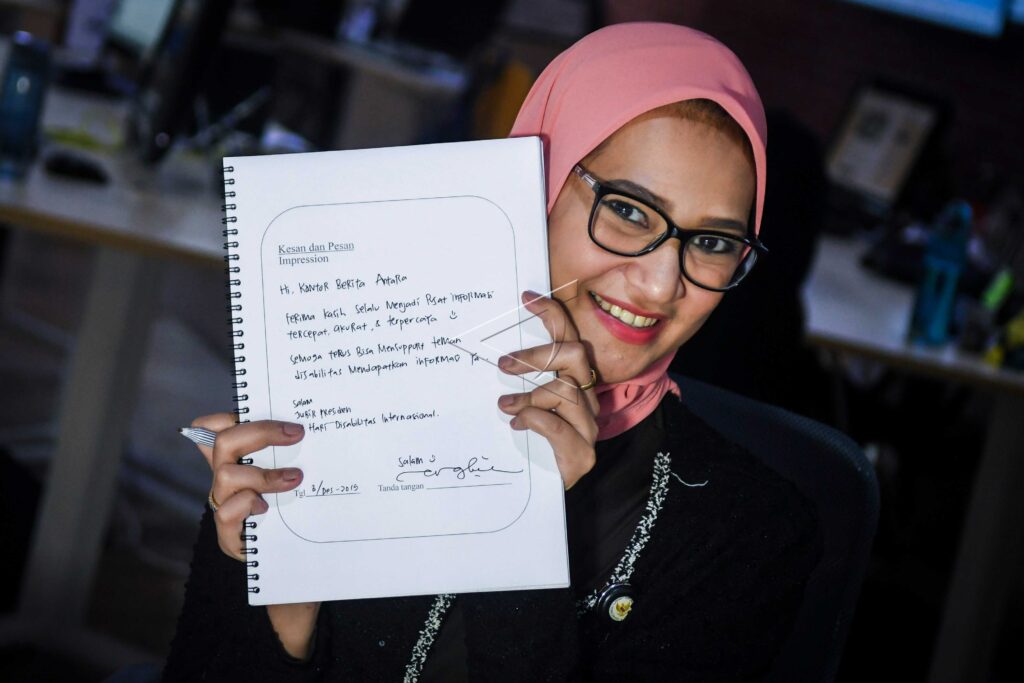 Kesan dan Pesan
Impression
Hi, Kantor Berita Antara
Terima kasih selalu menjadi pusat informasi
tercepat, akurat, & terpercaya
semoga terus bisa mensupport teman
disabilitas mendapatkan informasi
salam
Jubir Presiden
Hari Disabilitas Internasional.
salam
Tgl 3/Des-2019 Tanda tangan